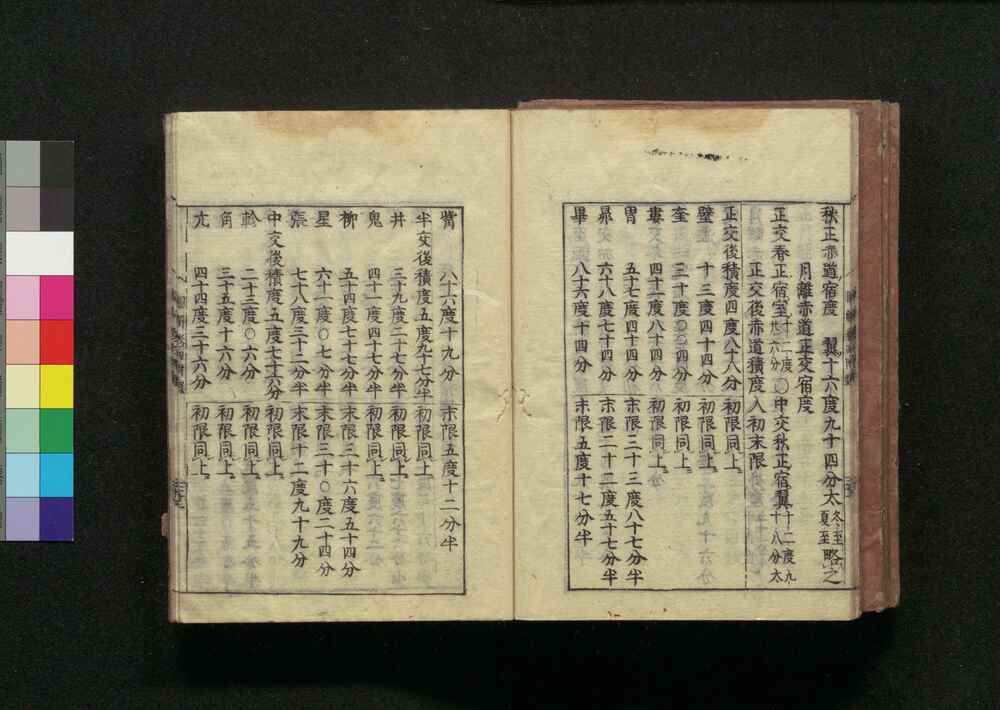 秋正赤道宿度 翼十六度九十四分太 冬至夏至略之
月離赤道正交宿度
正交春正宿室 十二度廿六分 ○中交秋正宿翼 十二度九十八分太
正交後赤道積度入初末限
正交後積度四度八十八分 初限同上
壁 十三度四十四分 初限同上
奎 三十度〇〇四分 初限同上
婁 四十一度八十四分 初限同上
胃 五十七度四十四分 末限三十三度八十七分半
昴 六十八度七十四分 末限二十二度五十七分半
畢 八十六度十四分 末限五度十七分半
觜 八十六度十九分 末限五度十二分半
半交後積度五度九十七分半 初限同上
井 三十九度二十七分半 初限同上
鬼 四十一度四十七分半 初限同上
柳 五十四度七十七分半 末限三十六度五十四分
星 六十一度〇七分半 末限三十〇度二十四分
張 七十八度三十二分半 末限十二度九十九分
中交後積度五度七十六分 初限同上
軫 二十三度〇六分 初限同上
角 三十五度十六分 初限同上
亢 四十四度三十六分 初限同上